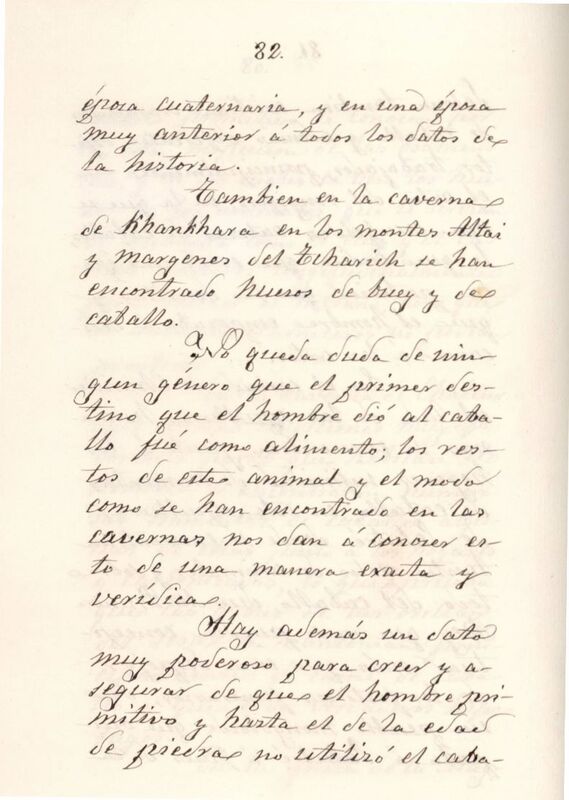 32.
época cuaternaria, y en una época
muy anterior á todos los datos de
la historia.
Tambien en la caverna
de Khankhara en los montes Altai
y margenes del Tcharich se han
encontrado huesos de buey y de
caballo.
No queda duda de nin-
gun género que el primer des-
tino que el hombre dió al caba-
llo fué como alimento; los res-
tos de este animal y el modo
como se han encontrado en las
cavernas nos dan á conocer es-
to de una manera exacta y
verídica.
Hay además un dato
muy poderoso para creer y a-
segurar de que el hombre pri-
mitivo y hasta el de la edad
de piedra no utilizó el caba-